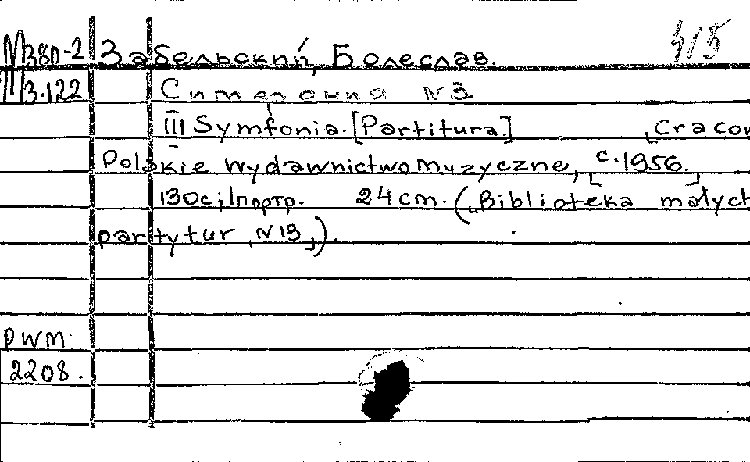 М380-2 Забельский, Болеслав. 415
М3.122 Симфония №3
III Symfonia. [Partitura] Cracow
Polskie wydawnictwo muzyczne, c.1956.
130с., 1портр. 24 cm. (Biblioteka małych
partytur, N13,).
PWM.
2208.